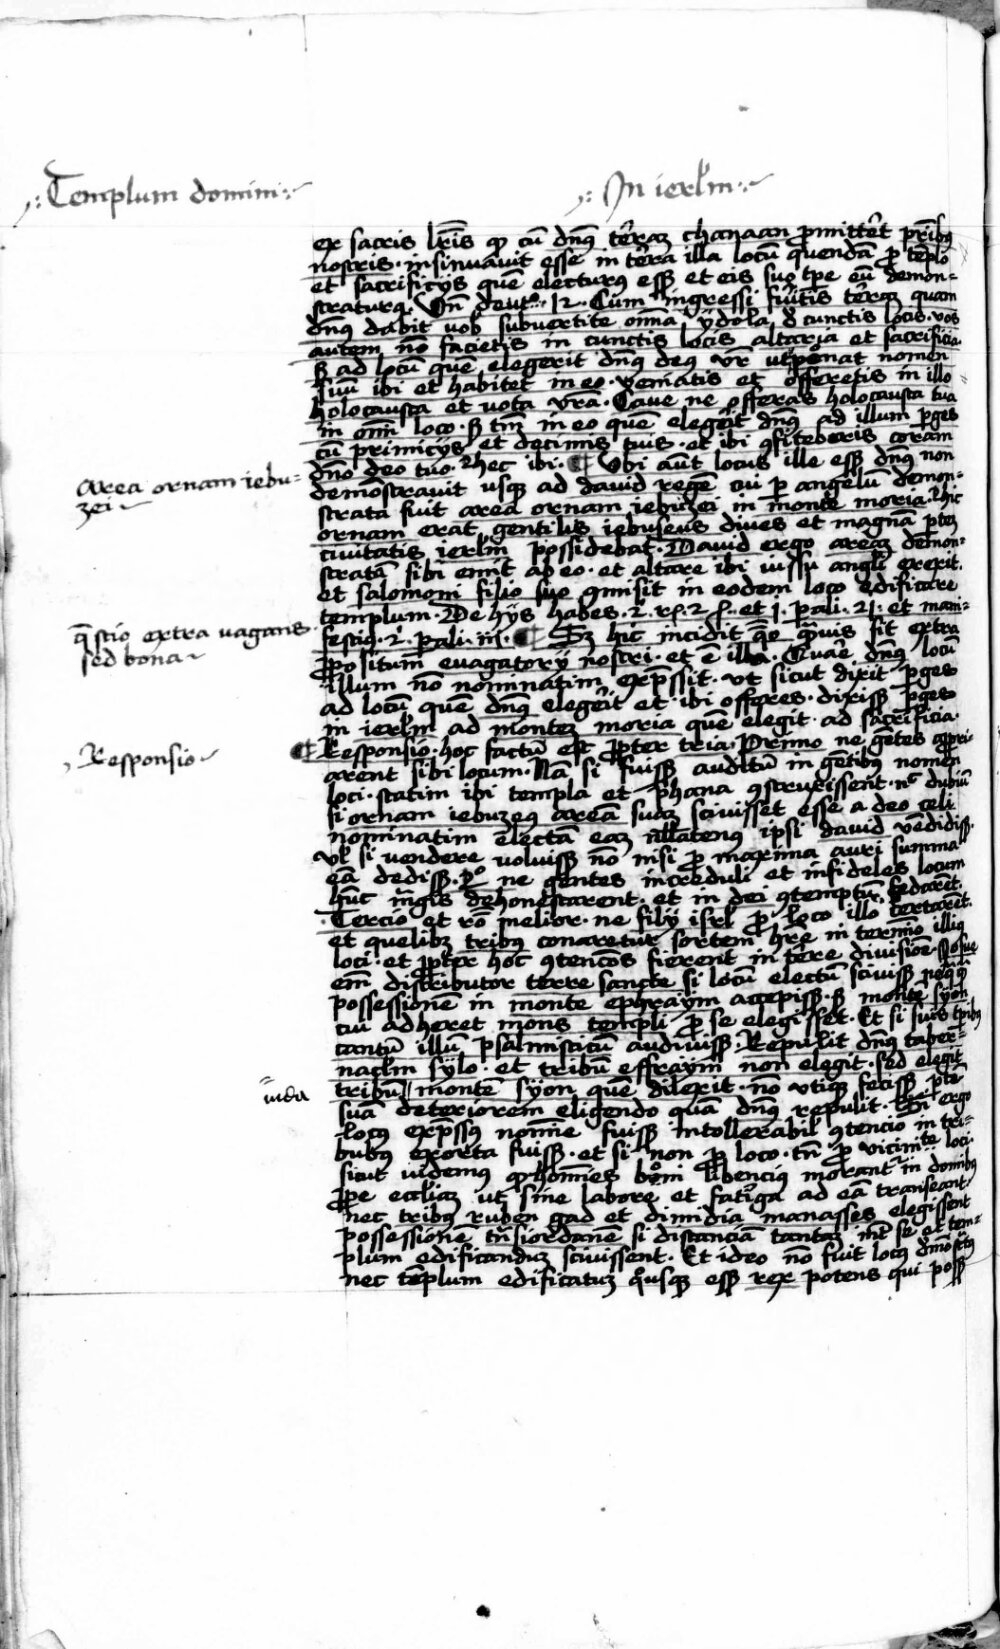 Templum domini
In ierl̄m
ex sacris lr̄is qp cū dn̄s terrā chanaan promitteret pr̄ibus
nostris · insinuavit esse in terra illa locū quendā pro tēplo
et sacrificijs quē electurus esset et eis suo tp̄e eū demon=
straturus. Vn̄ deut°. 12. Cum ingressi fueritis terrā quam
dn̄s dabit vob subvertite om̄ia ydola de cunctis locis · vos
autem nō facietis in cunctis locis altaria et sacrificia
sꝫ ad locū quē elegerit dn̄s deus vr̄ ut ponat nomen
suū ibi et habitet in eo · veniatis et offeretis in illo
holocausta et vota vr̄a · Cave ne offeras holocausta tua
in om̄i loco · sꝫ tm̄ in eo quē elegerit dn̄s ad illum perges
cū primicijs et decimis tuis · et ibi ꝯfiteberis coram
dn̄o deo tuo. hec ibi · ¶ Vbi aūt locus ille esset dn̄s non
demōstravit usqꝫ ad david regē cui per angelū demon=
strata fuit area ornam iebuzei in monte moria · hic
ornam erat gentilis iebuseus dives et magnā partē
civitatis ierl̄m possidebat · David ergo areā demon=
stratā sibi emit ab eo · et altare ibi iussu angeli erexit.
et salomoni filio suo ꝯmisit in eodem loco edificare
templum. De hijs habes · 2. re. 2 et 1. pali. 21. et mani=
festius · 2. pali. iii · ¶ Sꝫ hic incidit qō quāvis sit extra
propositum evagatorij nostri · et ē illa · Quare dn̄s locū
illum nō nominatim expressit · ut sicut dixit perges
ad locū quē dn̄s elegerit et ibi offeres · dixisset perges
in ierl̄m ad montē moria quē elegit · ad sacrificia ·
¶ Responsio · hoc factū est propter tria · Primo ne gētes appropri
arent sibi locum · Nā si fuisset auditū in gētibus nomen
loci · statim ibi templa et phana ꝯstruxissent · nec dubiū
si ornam iebuzeus areā suā scivisset esse a deo celi
nominatim electā eam nullatenus ipsi david vēdidisset.
vl si vendere voluisset nō nisi pro maxima auri summa
eā dedisset. 2° ne gentes increduli et infideles locum
hūc magis dehonestarent · et in dei ꝯtemptū fedarēt.
Tercio et rō melior · ne filij isrl pro loco illo certarēt.
et quelibet tribus conaretur sortem hr̄e in termīo illius
loci · et propter hoc ꝯtencōs fierent in terre divisiōe · Josue
em̄ distributor terre sancte si locū electū scivisset
possessionē in monte ephraym accepisset · sꝫ montē syon
cui adheret mons templi pro se elegisset · Et si suis tp̄ibus
cantū illū psalmisticū audivisset · Repulit dn̄s taber=
naclm̄ sylo · et tribū effraym non elegit · sed elegit
tribū montē syon quē dilexit · nō utique fecisset ptē
suā deteriorem eligendo quā dn̄s repulit · Si ergo
locus expressus nomine fuisset intollerabil ꝯtencio in tri=
bubus exorta fuisset · et si non pro loco · tn̄ pro vicinitate loci
sicut videmus qp homīes boni libencius morant in domibus
prope eccl̄iam ut sine labore et fatiga ad eā transeant.
nec tribus ruben gad et dimidia manasses elegissent
possessionē transiordanē si distanciā tantam int se et tem=
plum edificandum scivissent. Et ideo nō fuit locus demōstratus
nec tēplum edificatum quousqꝫ esset rex potens qui posset
area ornam iebu=
zei
questio extra vagans
sed bona
Responsio
iuda